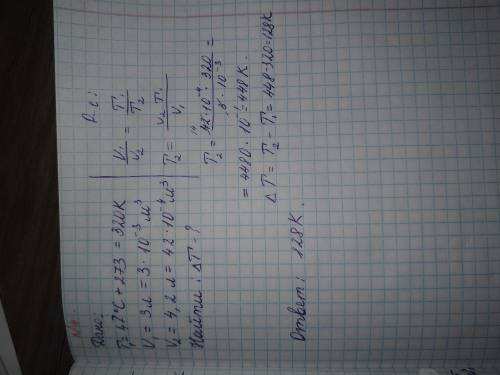 Дано:
T₁ = 47°C + 273 = 320K
V₁ = 3 л = 3 · 10⁻³ м³
V₂ = 4,2 л = 42 · 10⁻⁴ м³
Найти: ΔT - ?
P. c:
V₁/V₂ = T₁/T₂
T₂ = V₂ T₁ / V₁
T₂ = 42 · 10⁻⁴ · 320 / 3 · 10⁻³ =
= 4480 · 10⁻¹ = 448 K.
ΔT = T₂ - T₁ = 448 - 320 = 128K
Ответ: 128K.